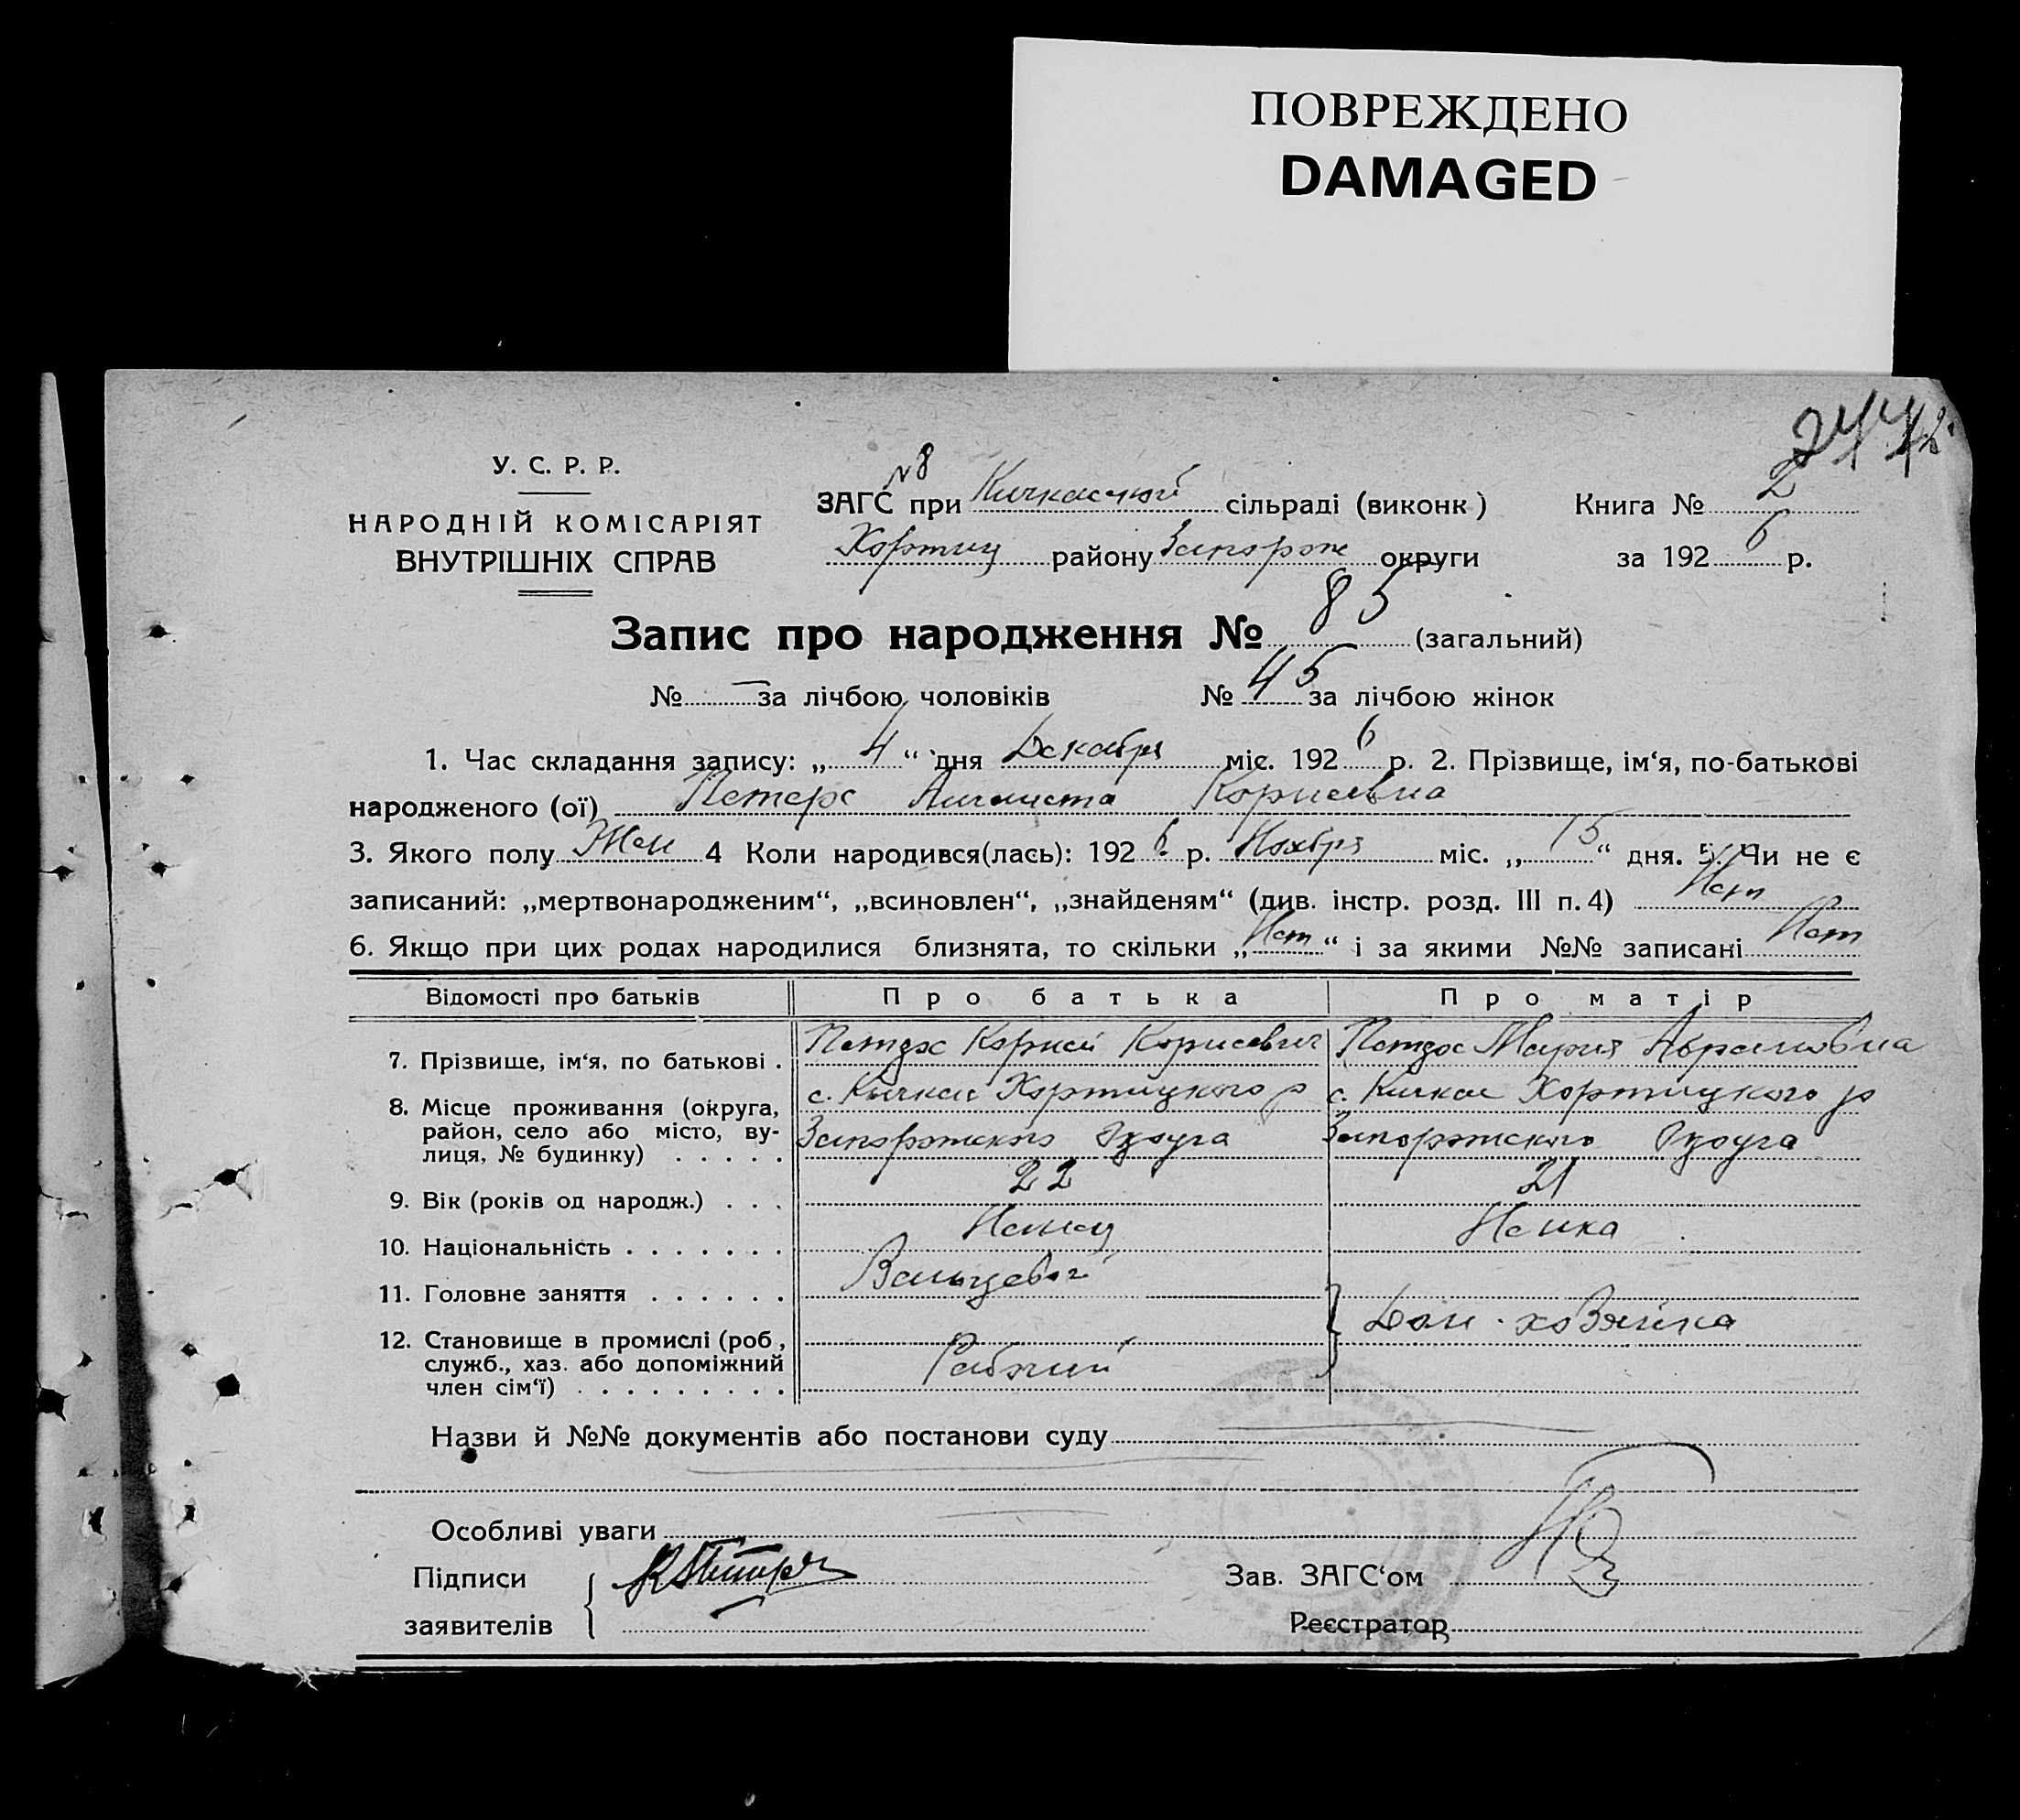 ПОВРЕЖДЕНО
DAMAGED
2
У. С. Р. Р.
НАРОДНІЙ КОМІСАРІЯТ
ВНУТРІШНІХ СПРАВ
N8
ЗАГС при Кичкаской сільраді (виконк) Книга № 2
Хортиц району Запорож округи за 1926 р.
Запис про народження № 85 (загальний)
№ — за лічбою чоловіків № 45 за лічбою жінок
1. Час складання запису: „4“ дня Декабря міс. 1926 р. 2. Прізвище, ім‘я, по-батькові
народженого (ої) Петерс Корнеевна
3. Якого полу Жен 4 Коли народився(лась): 1926 р. Ноября міс. „15“ дня. 5. Чи не є
записаний: „мертвонародженим“, „всиновлен“, „знайденям“ (див. інстр. розд. III п. 4) Нет
6. Якщо при цих родах народилися близнята, то скільки „Нет“ і за якими №№ записані Нет
Відомості про батьків Про батька Про матір
7. Прізвище, ім‘я, по батькові . Петерс Корней Корнеевич Петерс Мария Абрамовна
8. Місце проживання (округа, с. Кичкас Хортицкого р с. Кичкас Хортицкого р
район, село або місто, ву- Запорожского Округа Запорожского Округа
лиця, № будинку) . . . . .
9. Вік (років од народж.) . . . 22 21
10. Національність . . . . . . . Немец Немка
11. Головне заняття . . . . . . Вальцевой
12. Становище в промислі (роб, Дом. хозяйка
служб., хаз. або допоміжний Рабочий
член сім‘ї) . . . . . . . . .
Назви й №№ документів або постанови суду
Особливі уваги
Підписи Зав. ЗАГС‘ом
заявителів Реєстратор